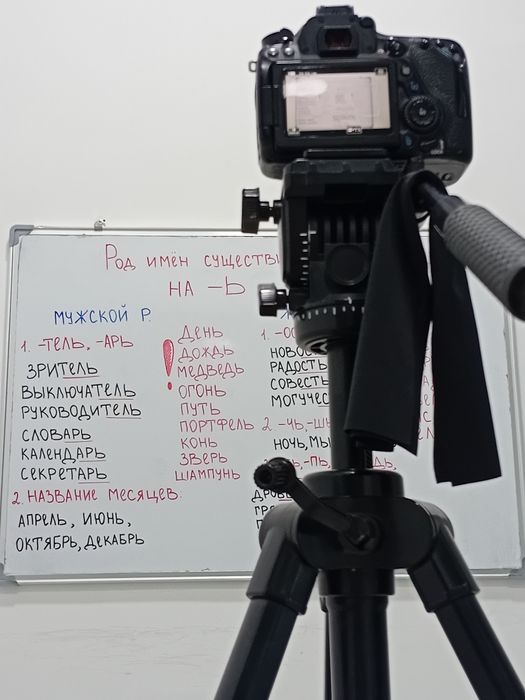 Род имён существи
НА -Ь
МУЖСКОЙ Р.
1. -ТЕЛЬ, -АРЬ
ЗРИТЕЛЬ
ВЫКЛЮЧАТЕЛЬ
РУКОВОДИТЕЛЬ
СЛОВАРЬ
КАЛЕНДАРЬ
СЕКРЕТАРЬ
2. НАЗВАНИЕ МЕСЯЦЕВ:
АПРЕЛЬ, ИЮНЬ,
ОКТЯБРЬ, ДЕКАБРЬ
!
ДЕНЬ
ДОЖДЬ
МЕДВЕДЬ
ОГОНЬ
ПУТЬ
ПОРТФЕЛЬ
КОНЬ
ЗВЕРЬ
ШАМПУНЬ
1. -ОС
НОВОС
РАДОСТЬ
СОВЕСТЬ
МОГУЧЕС
2. -ЧЬ, -ШЬ
НОЧЬ, МЫ